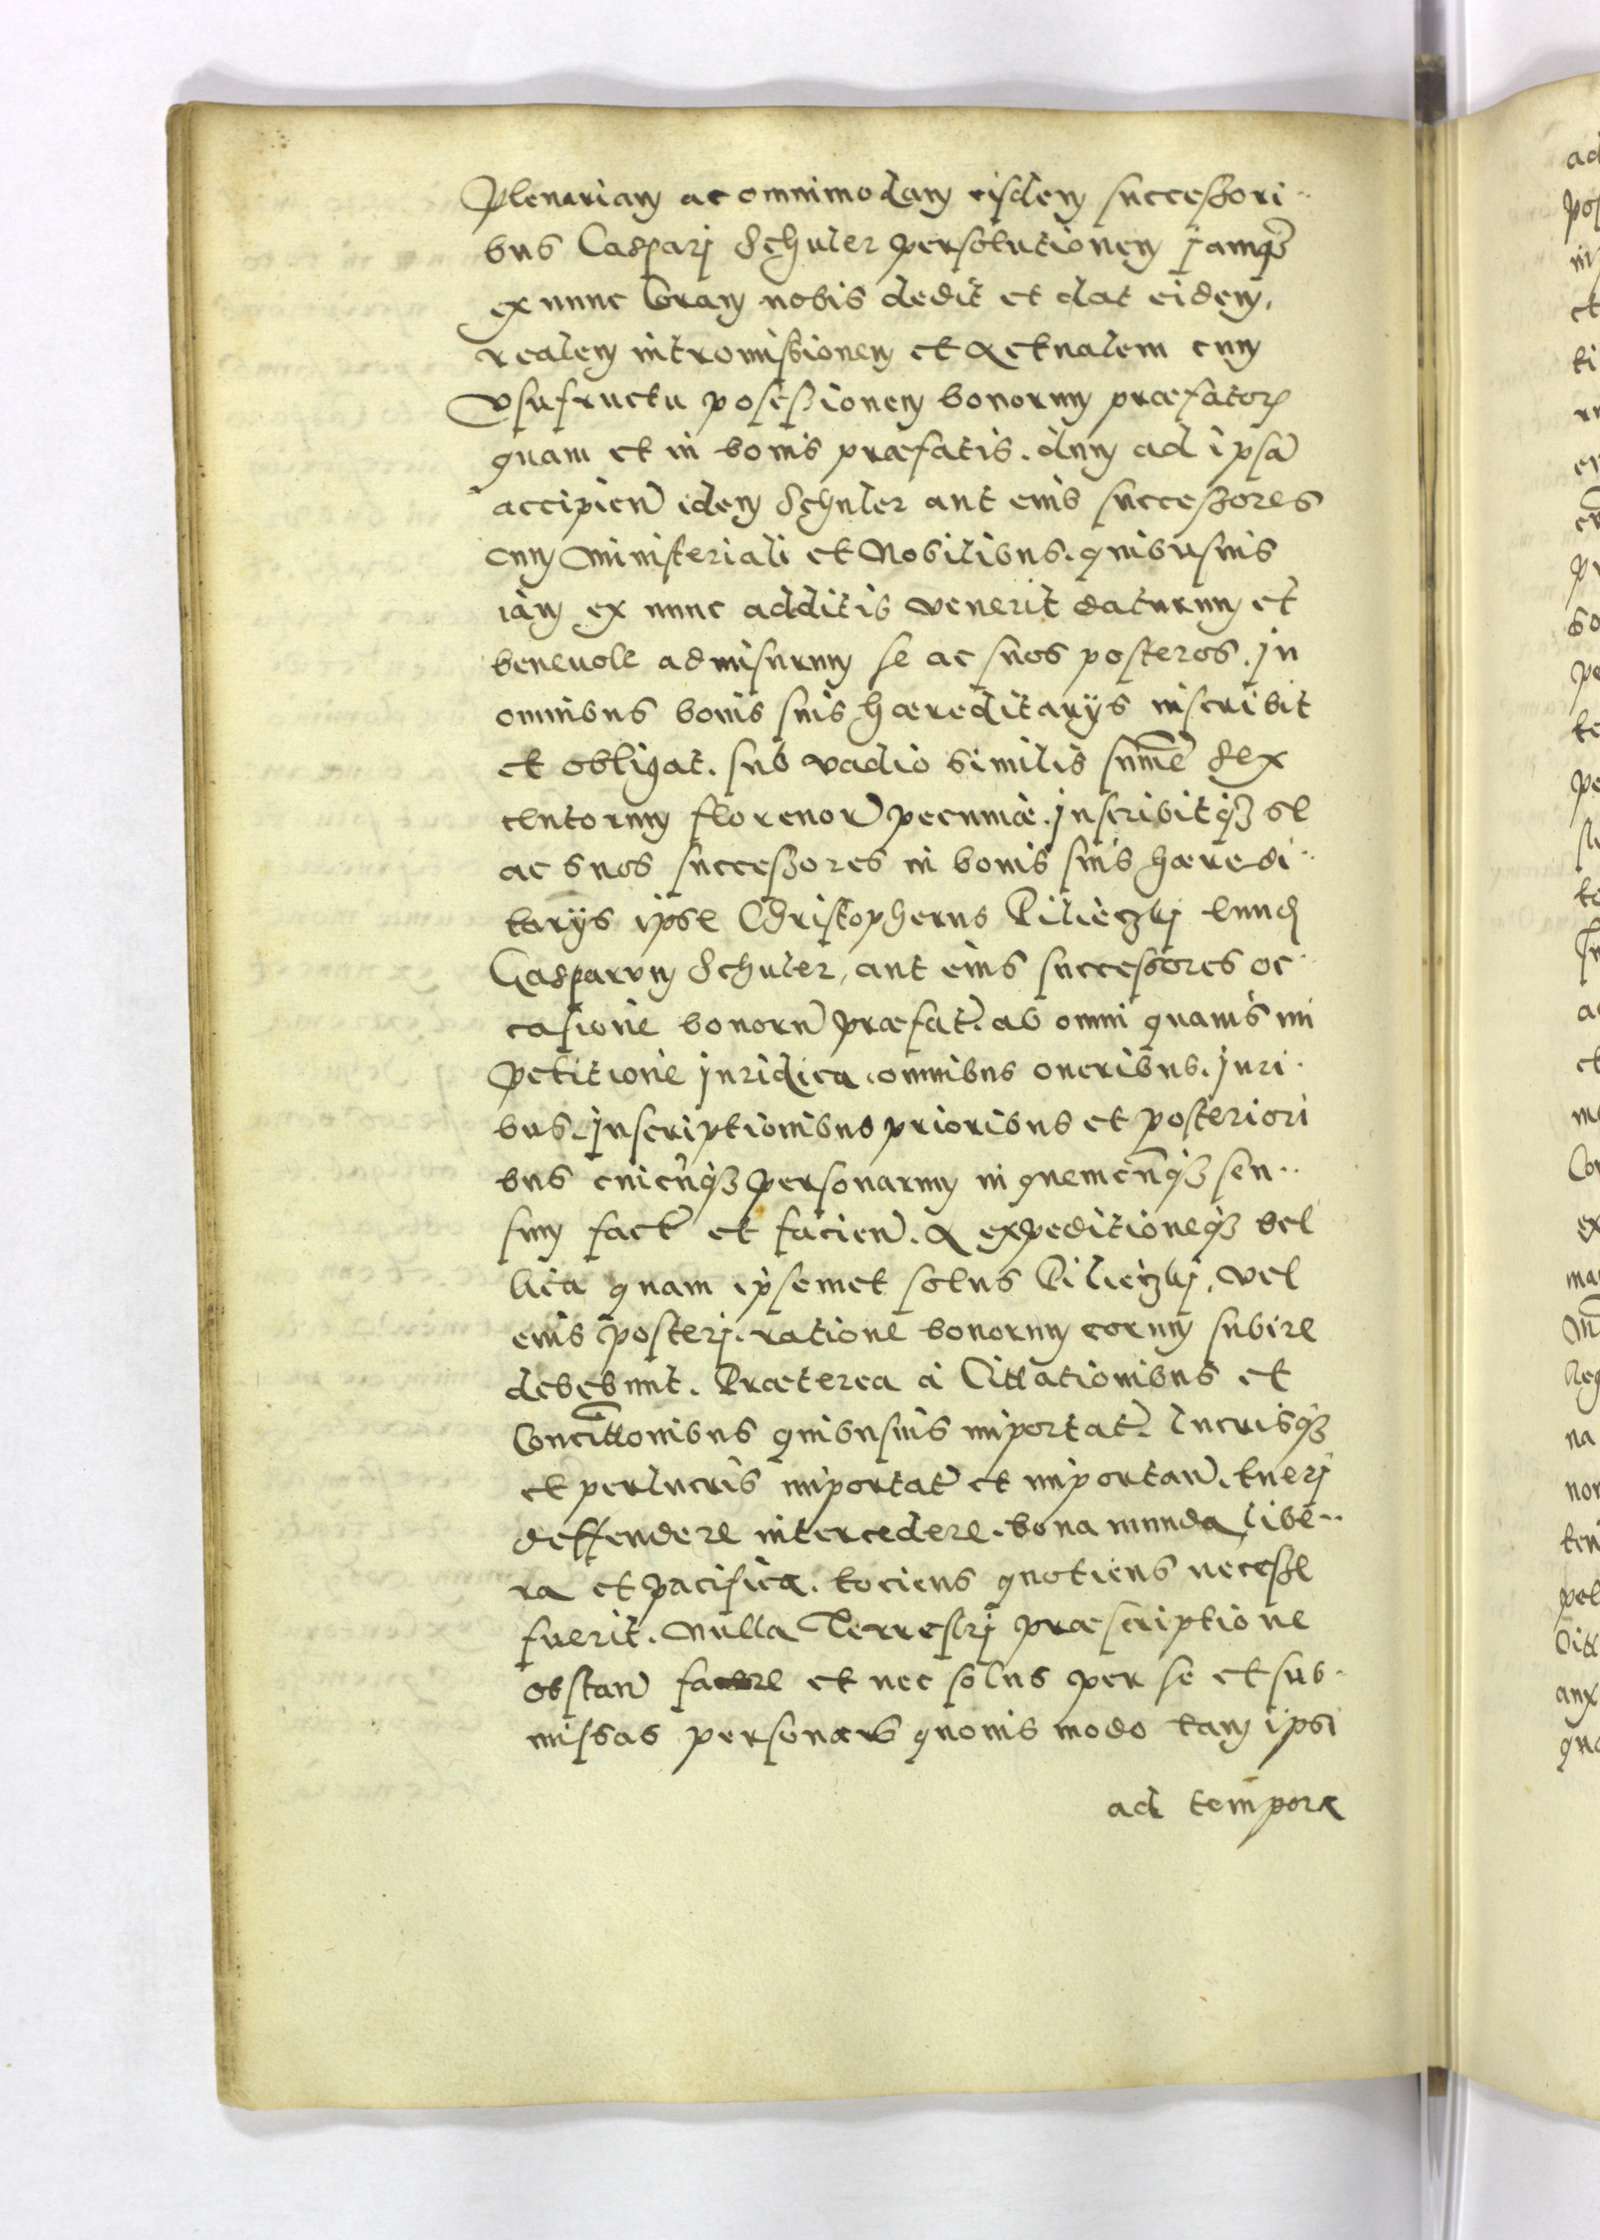 Plenariam ac omnimodam eisdem successori¨
bus Casparj Schuler persolutionem jamqȝ
ex nunc coram nobis dedit et dat eidem,
realem intromissionem et actualem cum
Vsufructu possessionem bonorum præfator̃
quam et in bonis præfatis. dum ad ipsã
accipien̄ idem Schuler aut eius successores
cum Ministeriali et Nobilibus. quibusuis
iam ex nunc additis venerit daturum et
beneuole admissurum se ac suos posteros. jn
omnibus bonis suis hæreditarijs inscribit
et obligat. sub vadio similis sum̄e Sex
centorum florenor̄ pecuniæ. jnscribitqȝ se
ac suos successores in bonis suis hæredi¨
tarijs ipse Christopherus Pilieczkj eund̄
Casparum Schuler, aut eius successores oc¨
casione bonorū præfat̄. ab omni quauis im
petitione juridica. omnibus oneribus. juri¨
bus. jnscriptionibus prioribus et posteriori
bus cuicūqȝ personarum in quemcūqȝ sen¨
sum fact̄ et facien̄. a expeditioneqȝ bel
lica quam ipsemet solus Pilieczkj, vel
eius posterj. ratione bonorum eorum subire
debebunt. Præterea à Cittationibus et
Concittonibus quibusuis importat̄. lucrisqȝ
et perlucris importat̄ et importan̄. tuerj
deffendere intercedere. bona munda libe¨
ra et pacifica. tociens quotiens necesse
fuerit. Nulla Terrestrj præscriptione
obstan̄ facere et nec solus per se et sub¨
missas personas quouis modo tam ipsi
ad tempora
ad
pos
in
et
ti